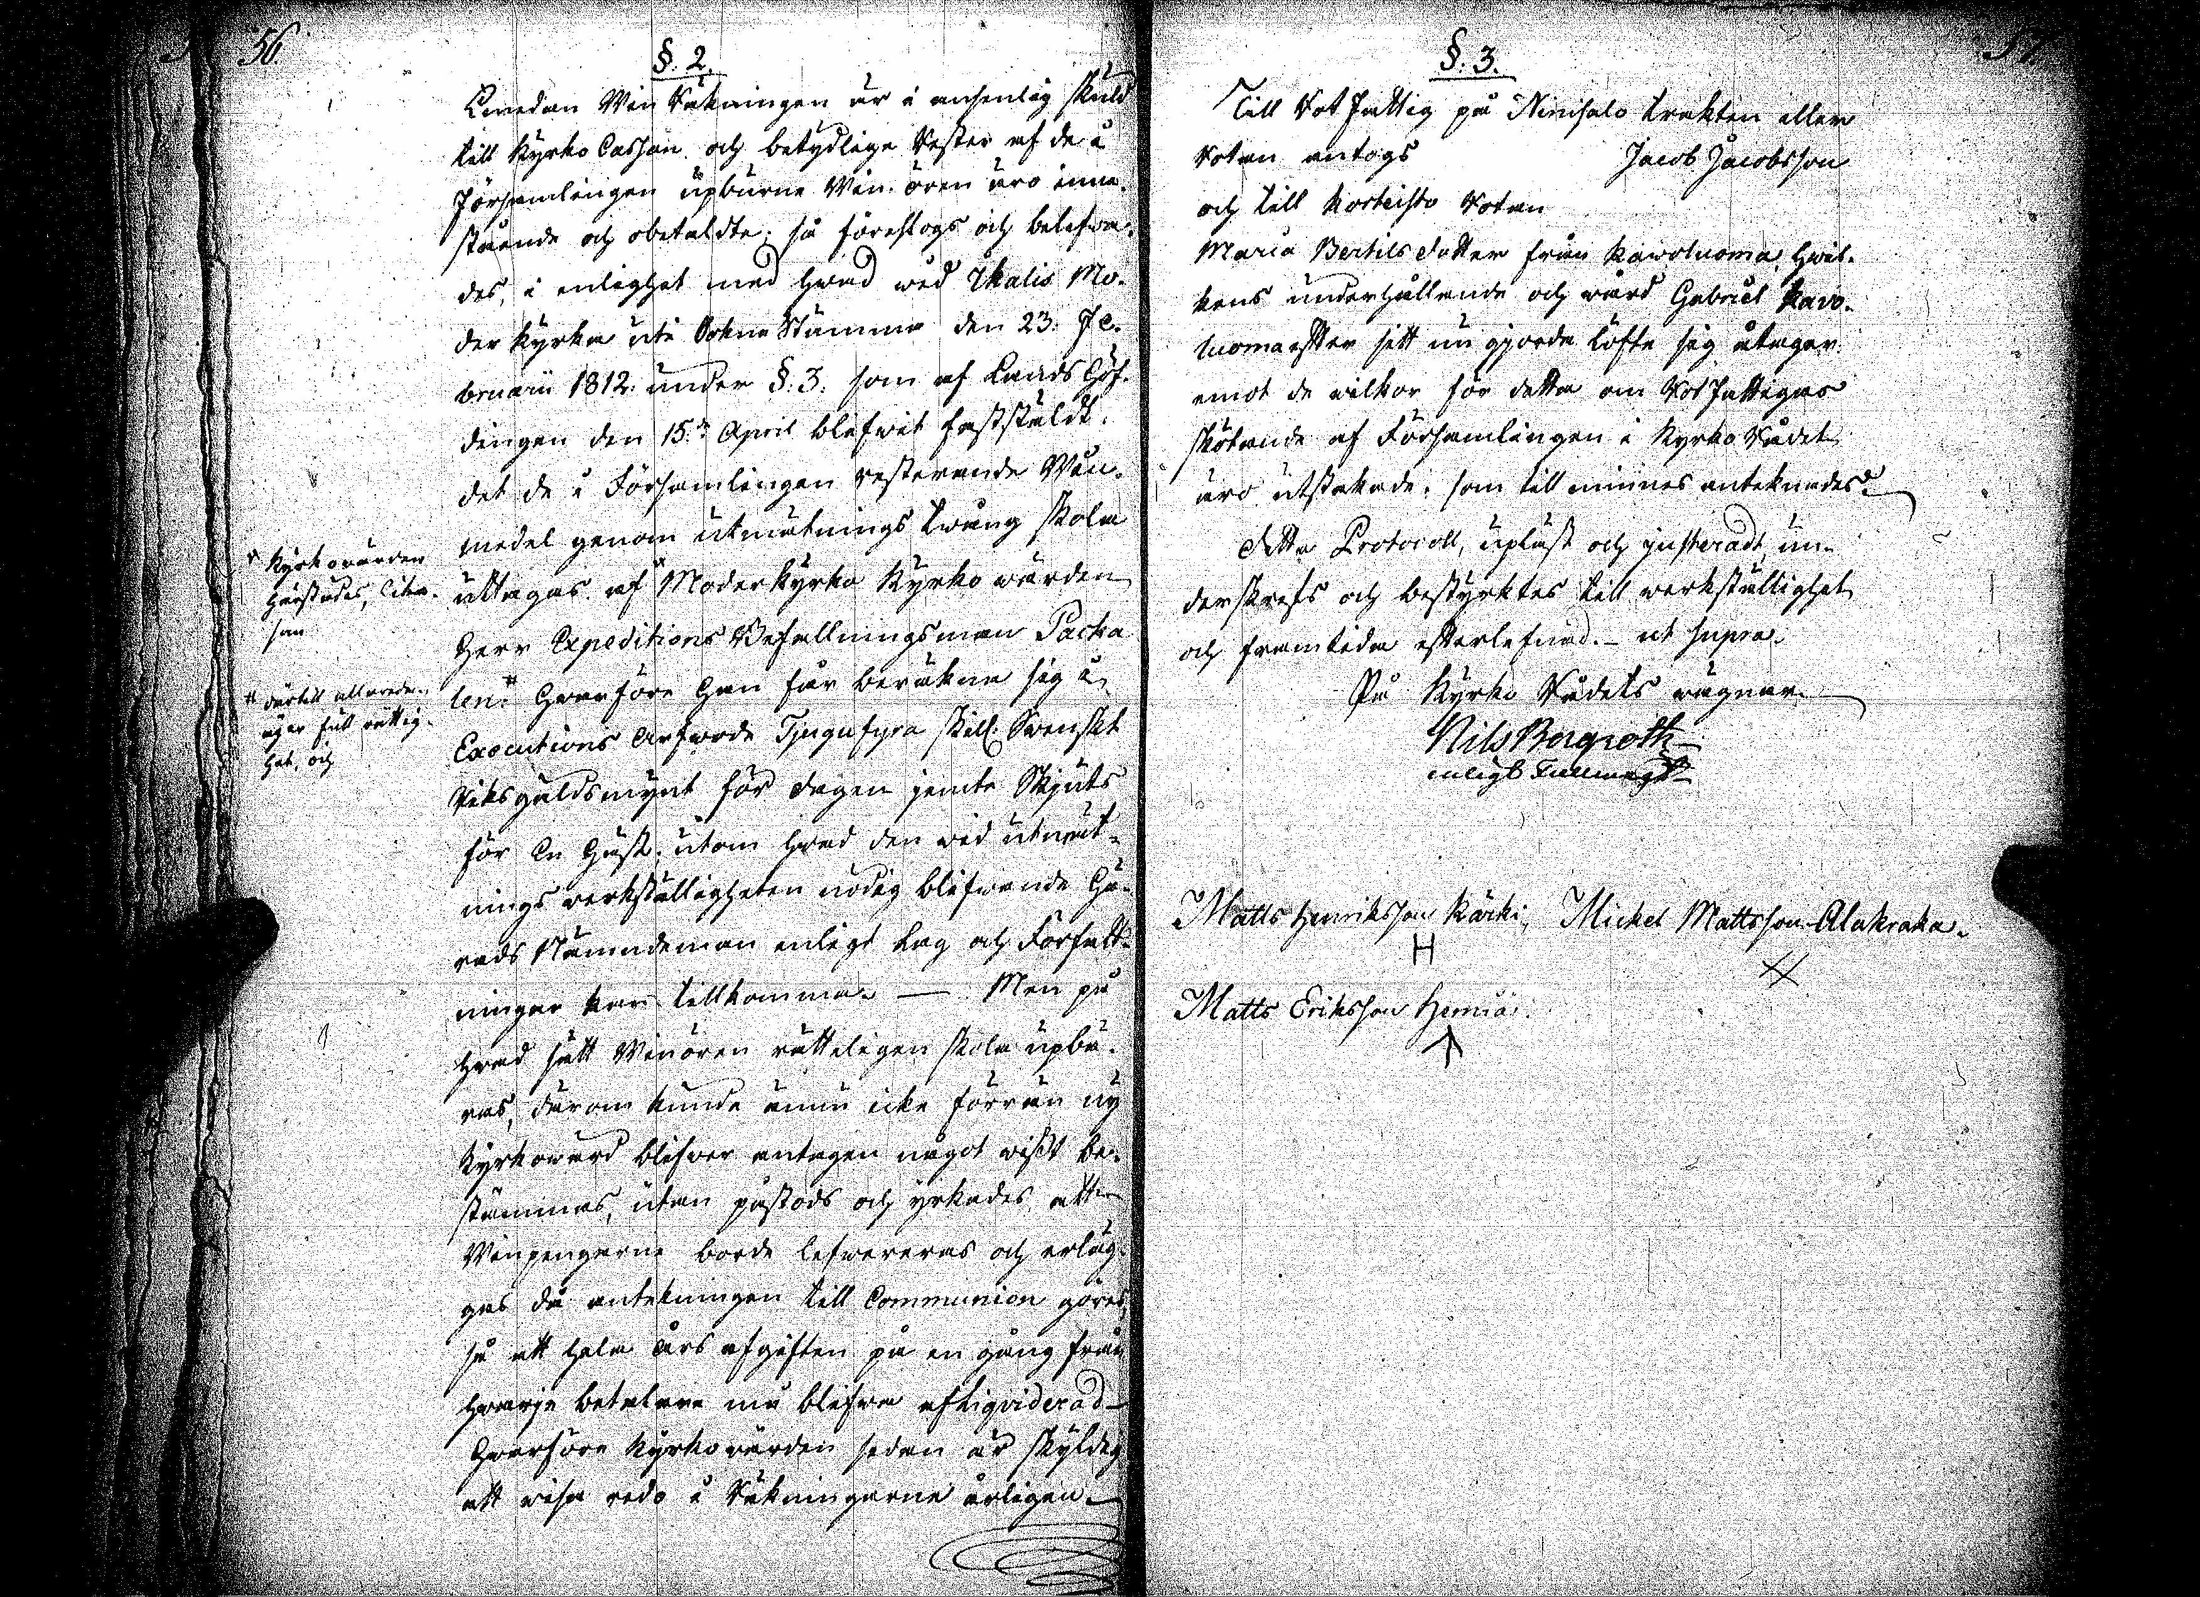 56
§. 2.
Emedan Win Räkningen är i ansenlig skuld
till Kyrko Cassan och betydlige Rester af de i
Församlingen upburne Win ören äro inne-
stående och obetaldte; så föreslogs och belefwa-
des, i enlighet med hwad wid Ikalis Mo-
der Kyrka uti Sokne Stämma den 23. Fe-
bruarii 1812. under §. 3. som af Lands Höf-
dingen den 15.de April blifwit faststäldt,
det de i Församlingen resterande Win-
medel genom utmätnings twång skola
uttagas af * Moderkyrko Kyrkowärden
Herr Expeditions Befallningsman Packa
len # Hwarföre Han får beräkna sig i
Executions Arfwode Tjugufyra skill. Svenskt
Riksgäldsmynt för dagen jemte Skjuts
för En Häst, utom hwad den wid utmät-
nings werkställigheten nödig blifwande Hä-
rads Nämndeman enligt Lag och Författ-
ningar kan tillkomma. — Men på
hwad sätt Winören rätteligen skola upbä-
ras, därom kunde ännu icke förrän ny
Kyrkowärd blifwer antagen något wisst be-
stämmas, utan påstods och yrkades att
Winpengarne borde lefwereras och erläg-
gas då antekningen till Communion göres,
så att hela Års afgiften på en gång från
hwarje betalare må blifwa afliqviderad
Hwarföre Kyrkowärden sedan är skyldig
att wisa redo i Räkningarne årligen.
* Kyrkowärden
härstädes, liter-
san
# därtill allareda
äger full rättig-
het, och
57
§. 3.
Till Rot Fattig på Niinisalo trakten eller
Roten antogs Jacob Jacobsson
och till Korteisto Roten
Maria Bertils dotter från Kawoluoma, hwil-
kens underhållande och wård Gabriel Kavo-
luoma efter sitt nu gjorda löfte sig åtager
emot de wilkor för detta om Rot Fattigas
skötande af Församlingen i Kyrko Rådet
äro utstakade; som till minnes antecknades.
Detta Protocoll, upläst och justeradt, un-
derskrefs och bestyrktes till werkställighet
och framtida efterlefnad. – ut supra.
På Kyrko Rådets wägnar.
Nils Bergroth
enligt Fullmagt
Matts Henriksson Kärki, Michel Mattsson Alakraka.
H
Matts Eriksson Hemiä